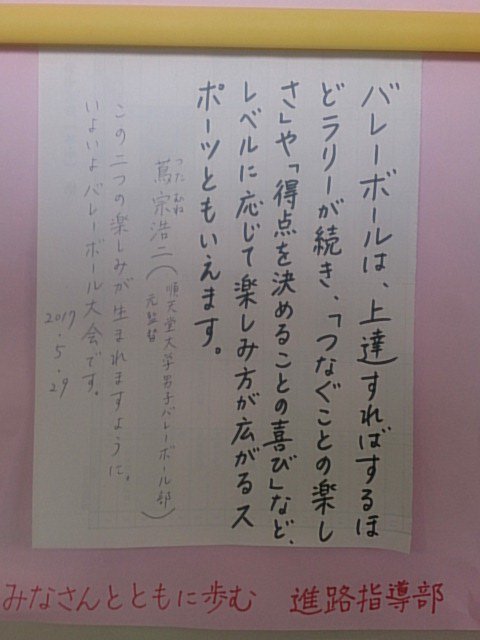 バレーボールは、上達すればするほ
どラリーが続き、「つなぐことの楽し
さ」や「得点を決めることの喜び」など、
レベルに応じて楽しみ方が広がるス
ポーツともいえます。
つた むね
蔦宗浩二(順天堂大学男子バレーボール部
元監督)
この二つの楽しみが生まれますように。
いよいよバレーボール大会です。
2017.5.29
みなさんとともに歩む 進路指導部